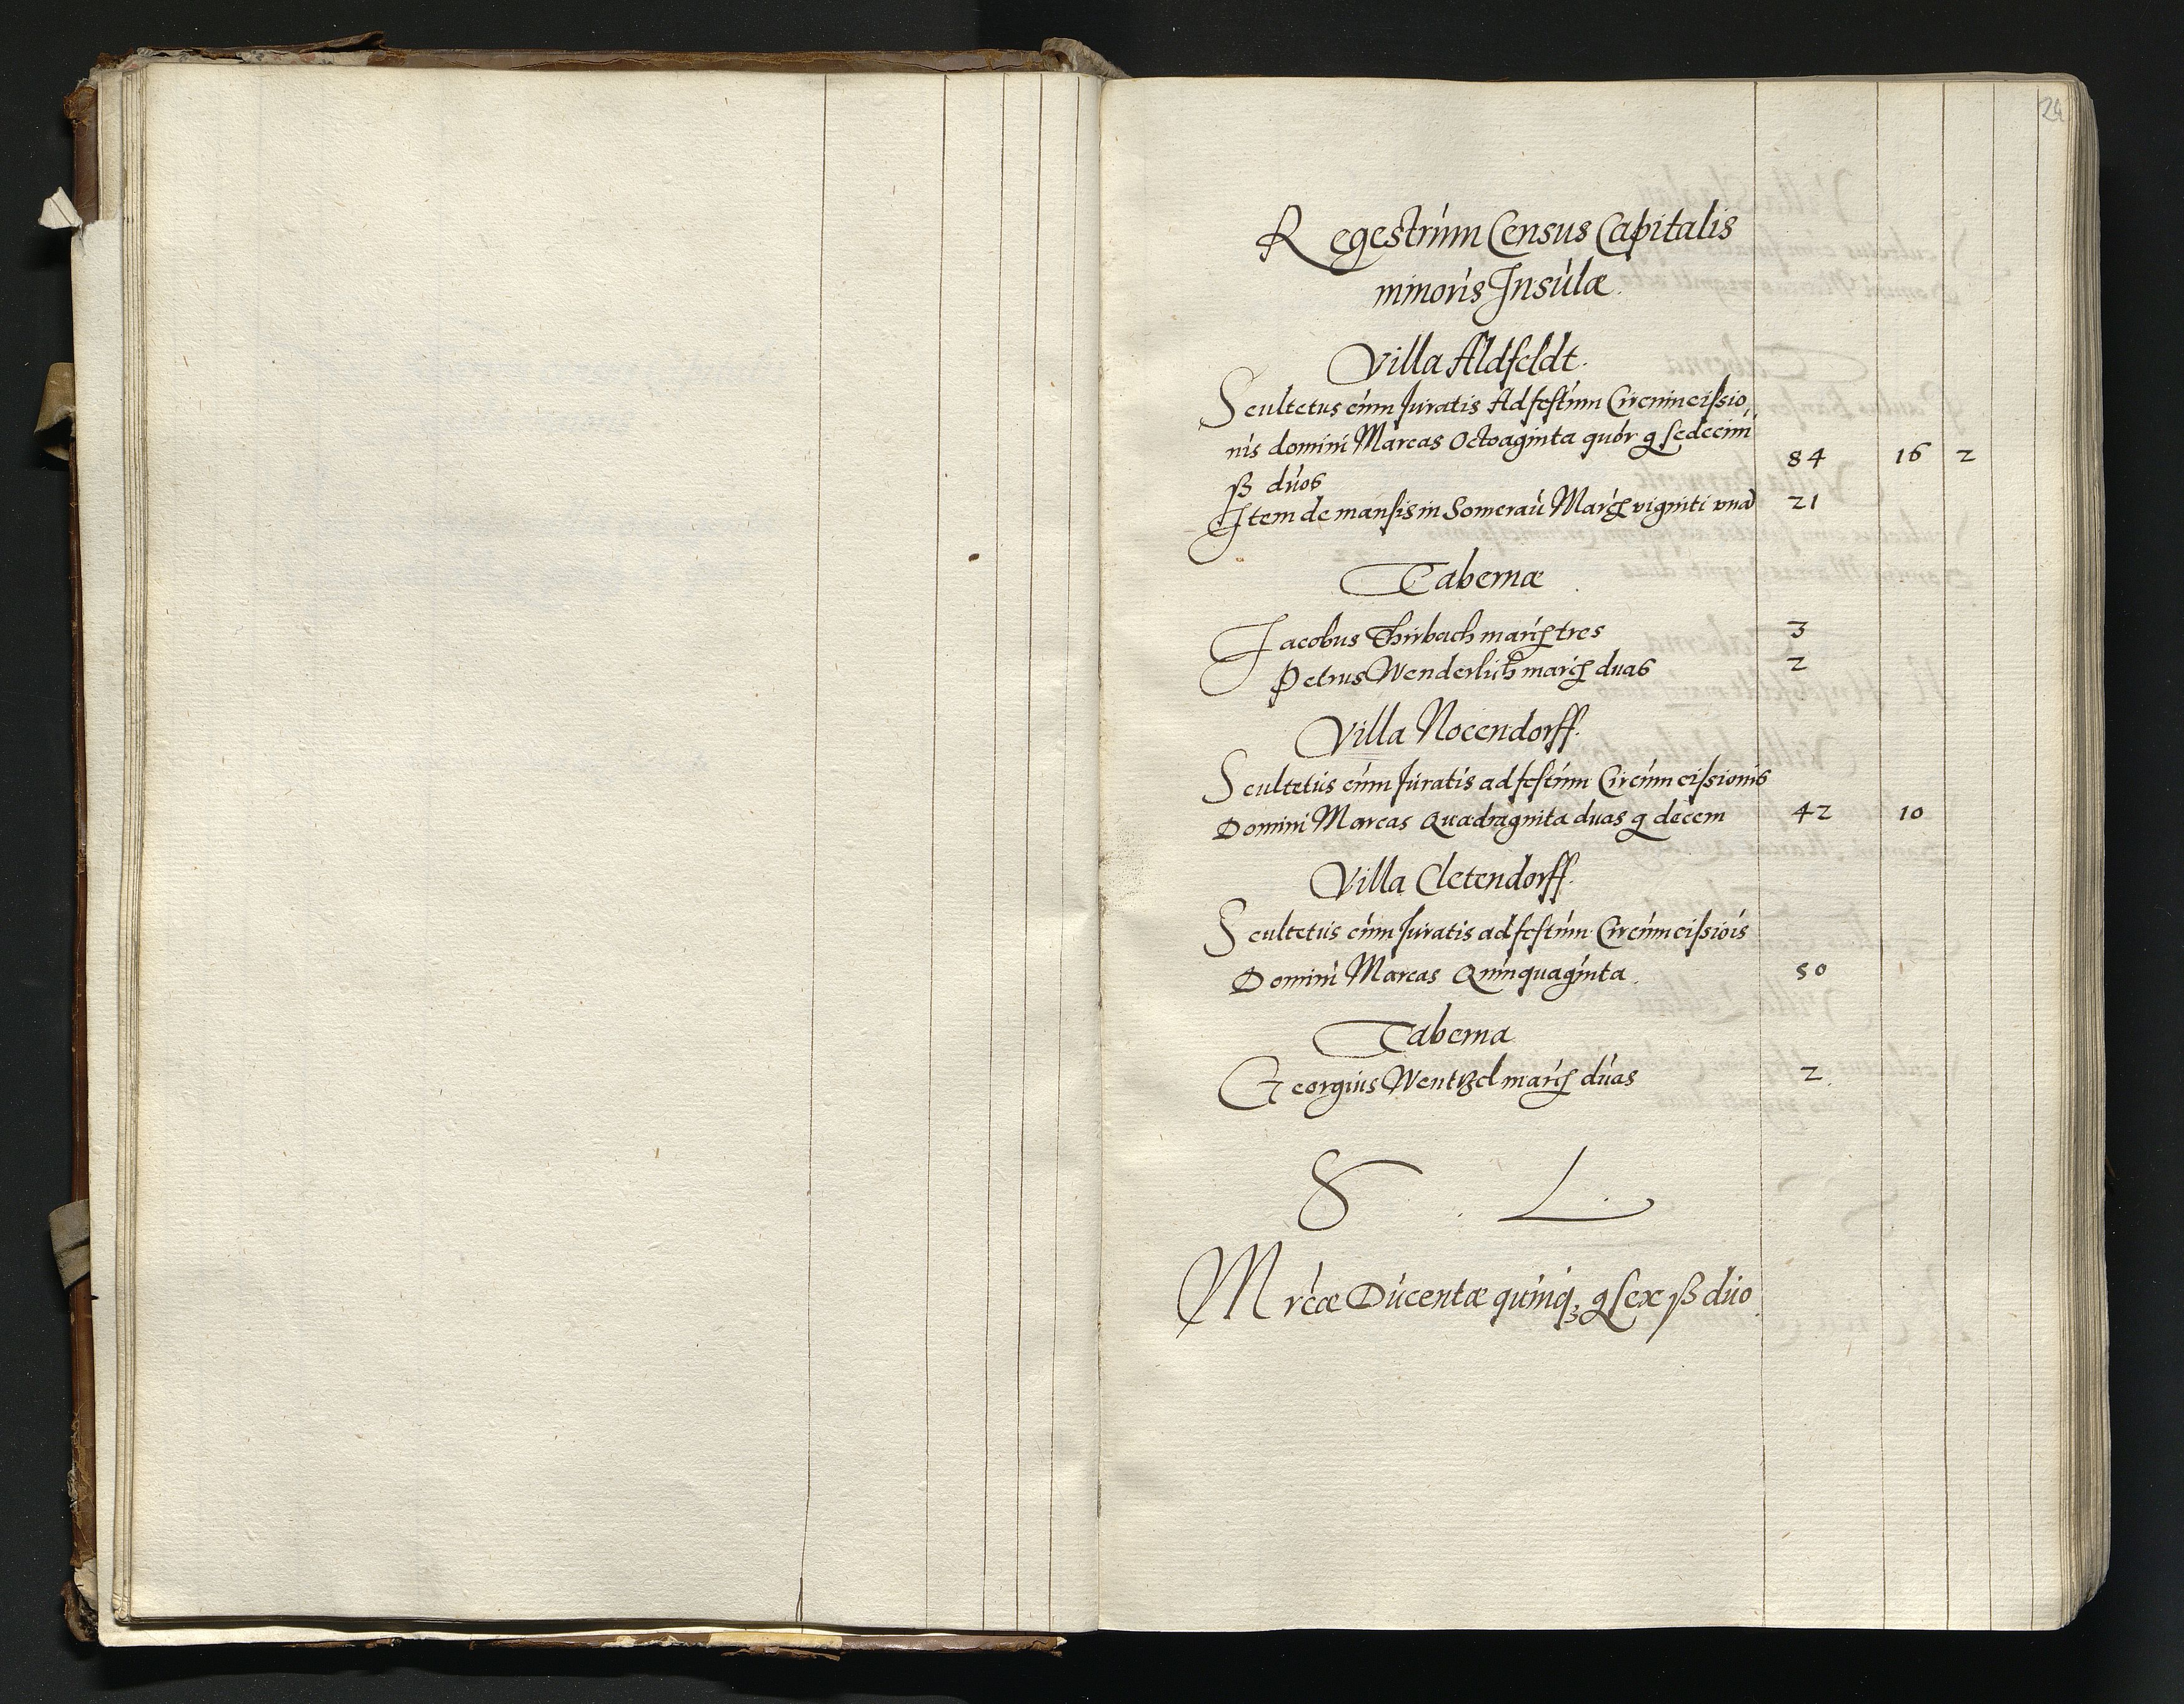 24
Regestrum Census Capitalis
minoris Insulæ.
Villa Aldfeldt.
Scultetus cum Juratis Ad festum Circumcissio,
nis domini Marcas Octoaginta quór g sedecim
ß duos 84 16 2
Item de mansis in Somerau Marc̃ viginti vna 21
Tabernæ
Jacobus Thirbach marc̃ tres 3
Petrus Wenderlich marc̃ duas 2
Villa Nocendorff.
Scultetus cum Juratis ad festum Circumcissionis
Domini Marcas Quadraginta duas g decem 42 10
Villa Cletendorff.
Scultetus cum Juratis ad festum Circumcissiois
Domini Marcas Quinquaginta. 50
Taberna
Georgius Wentzel marc̃ duas 2.
S . L
Mrcæ Ducentæ quinq₃ g sex ß duo